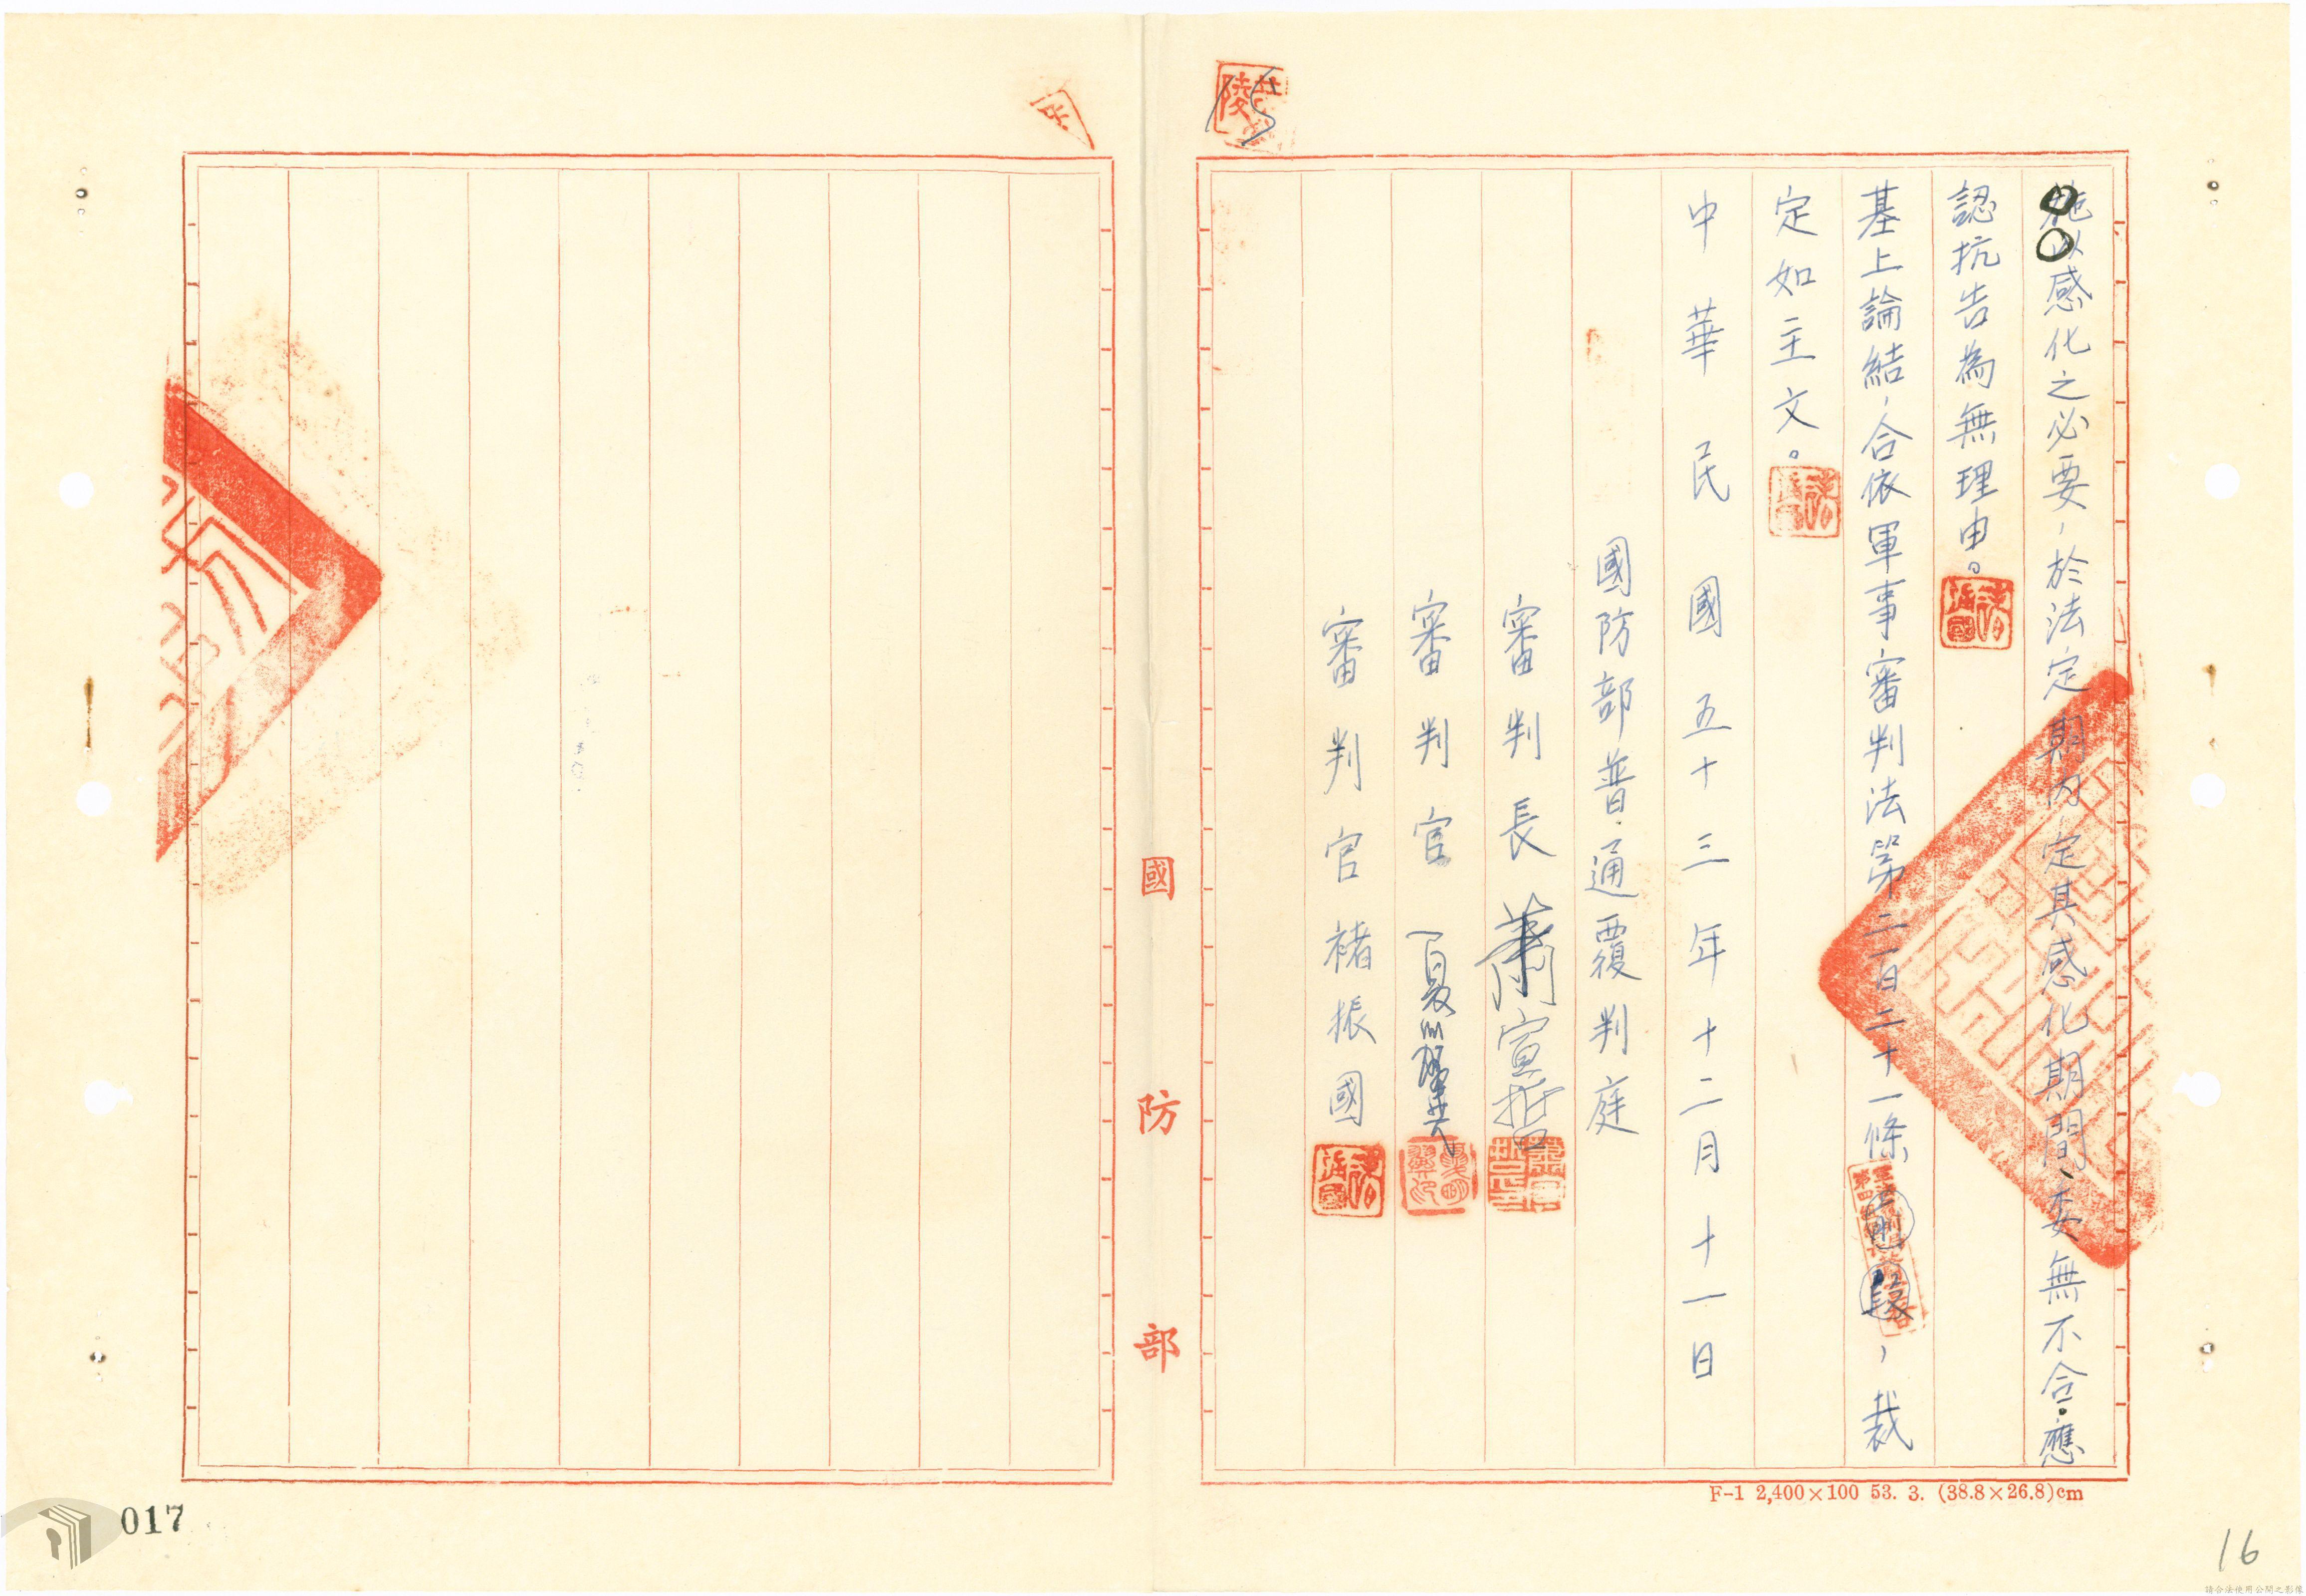 施以感化之必要,於法定期內,定其感化期間、委無不合。應
認抗告為無理由。
基上論結,合依軍事審判法第二百二十一條
,裁
定如主文。
中華民國五十三年十二月十一日
國防部普通覆判庭
審判長 蕭宣哲
審判官 夏
審判官 褚振國
國防部
F-1 2,400×100 53. 3. (38.8×26.8)cm
15
16
017
請合法使用公開之影像